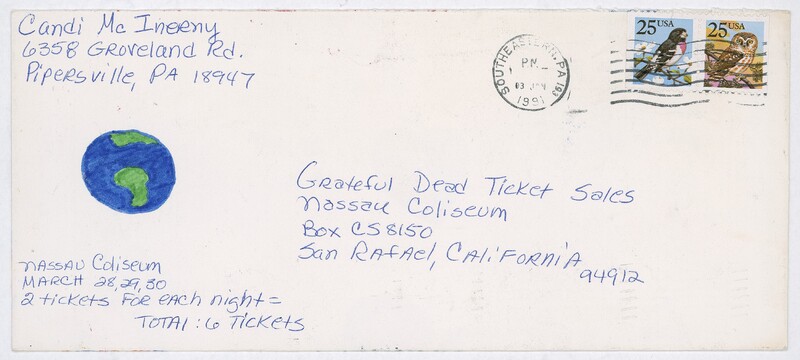 Candi Mc Inerny
6358 Groveland Rd.
Pipersville, PA 18947
SOUTHEASTERN, PA 193
PM
03 JAN
1991
25 USA
25 USA
Grateful Dead Ticket Sales
Nassau Coliseum
Box CS8150
San Rafael, California
94912
Nassau Coliseum
March 28, 29, 30
2 tickets for each night =
Total: 6 Tickets